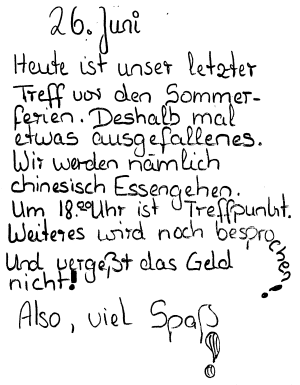 26. Juni
Heute ist unser letzter
Treff vor den Sommer-
ferien. Deshalb mal
etwas ausgefallenes.
Wir werden nämlich
chinesisch Essengehen.
Um 18.00 Uhr ist Treffpunkt.
Weiteres wird noch besprochen!
Und vergeßt das Geld
nicht!
Also, viel Spaß!